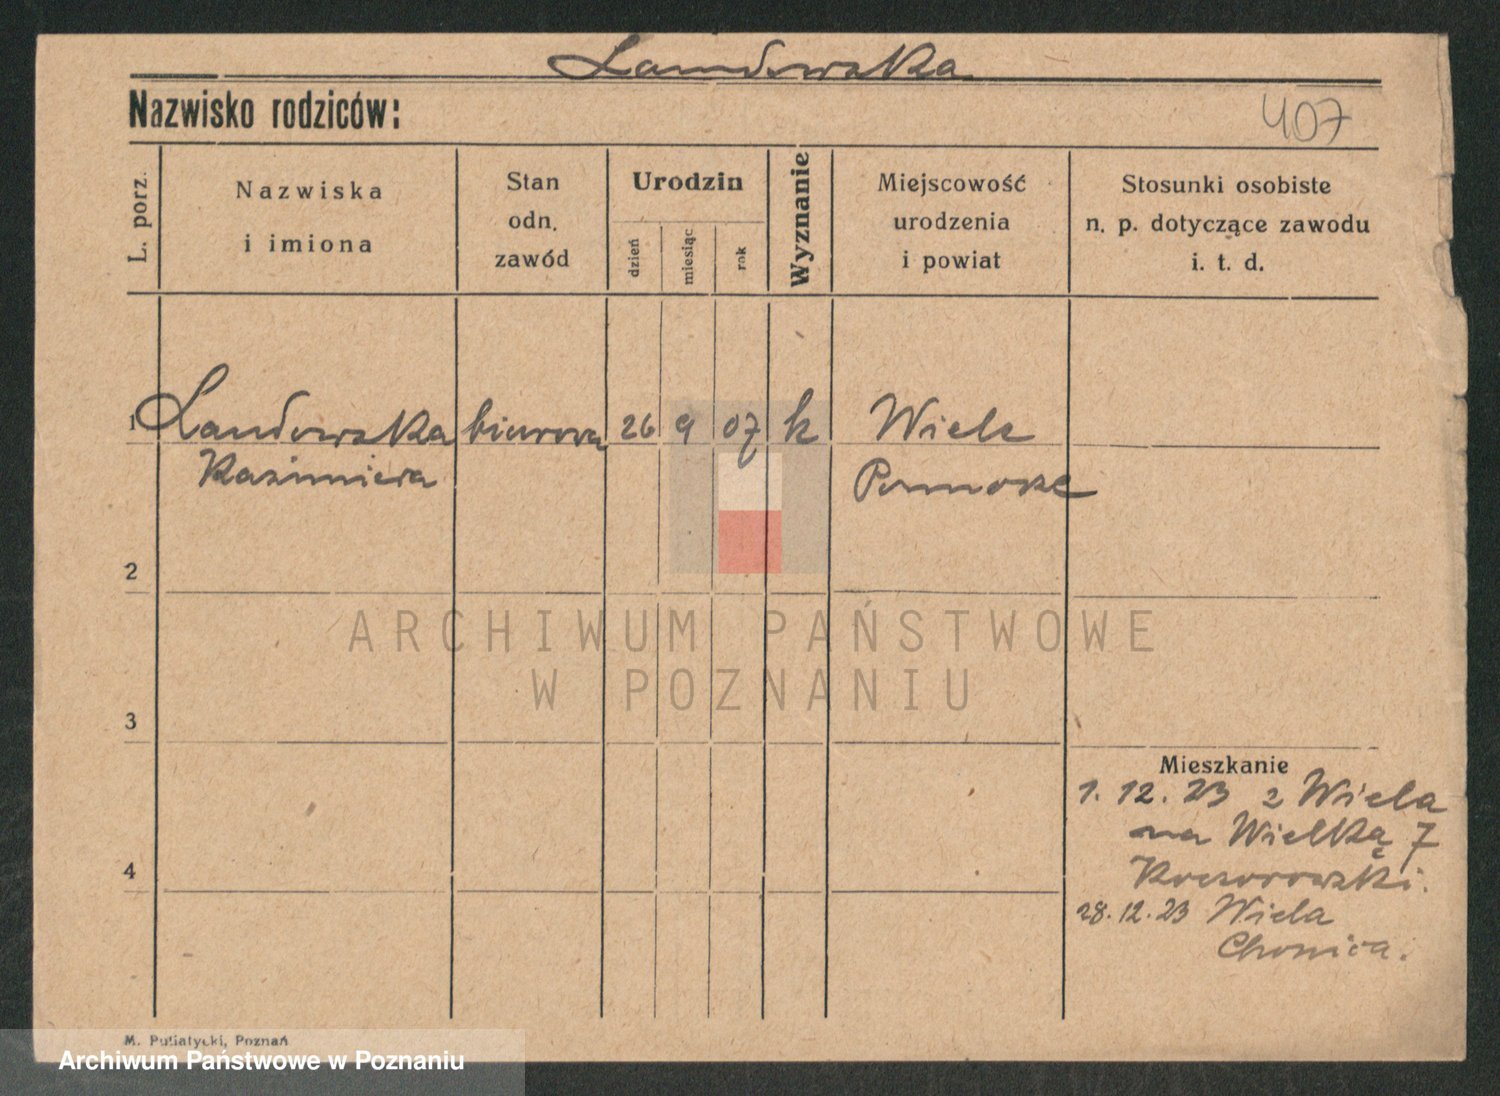 Landowska
Nazwisko rodziców:
407
L. porz.
Nazwiska
i imiona
Stan
odn.
zawód
Urodzin
dzień
miesiąc
rok
Wyznanie
Miejscowość
urodzenia
i powiat
Stosunki osobiste
n. p. dotyczące zawodu
i. t. d.
1 Landowska biurowa 26 9 07 k Wiele
Kazimiera Pomorze
2
ARCHIWUM PAŃSTWOWE
W POZNANIU
3
Mieszkanie
1. 12. 23 z Wiela
na Wielką 7
4
28. 12. 23 Wiela
M. Putiatycki, Poznań
Archiwum Państwowe w Poznaniu